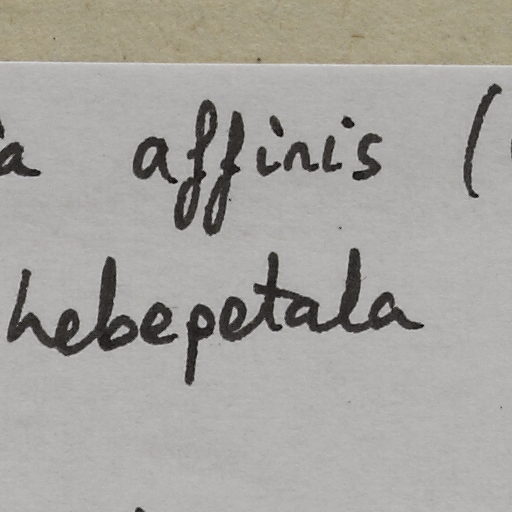 a affinis (
hebepetala